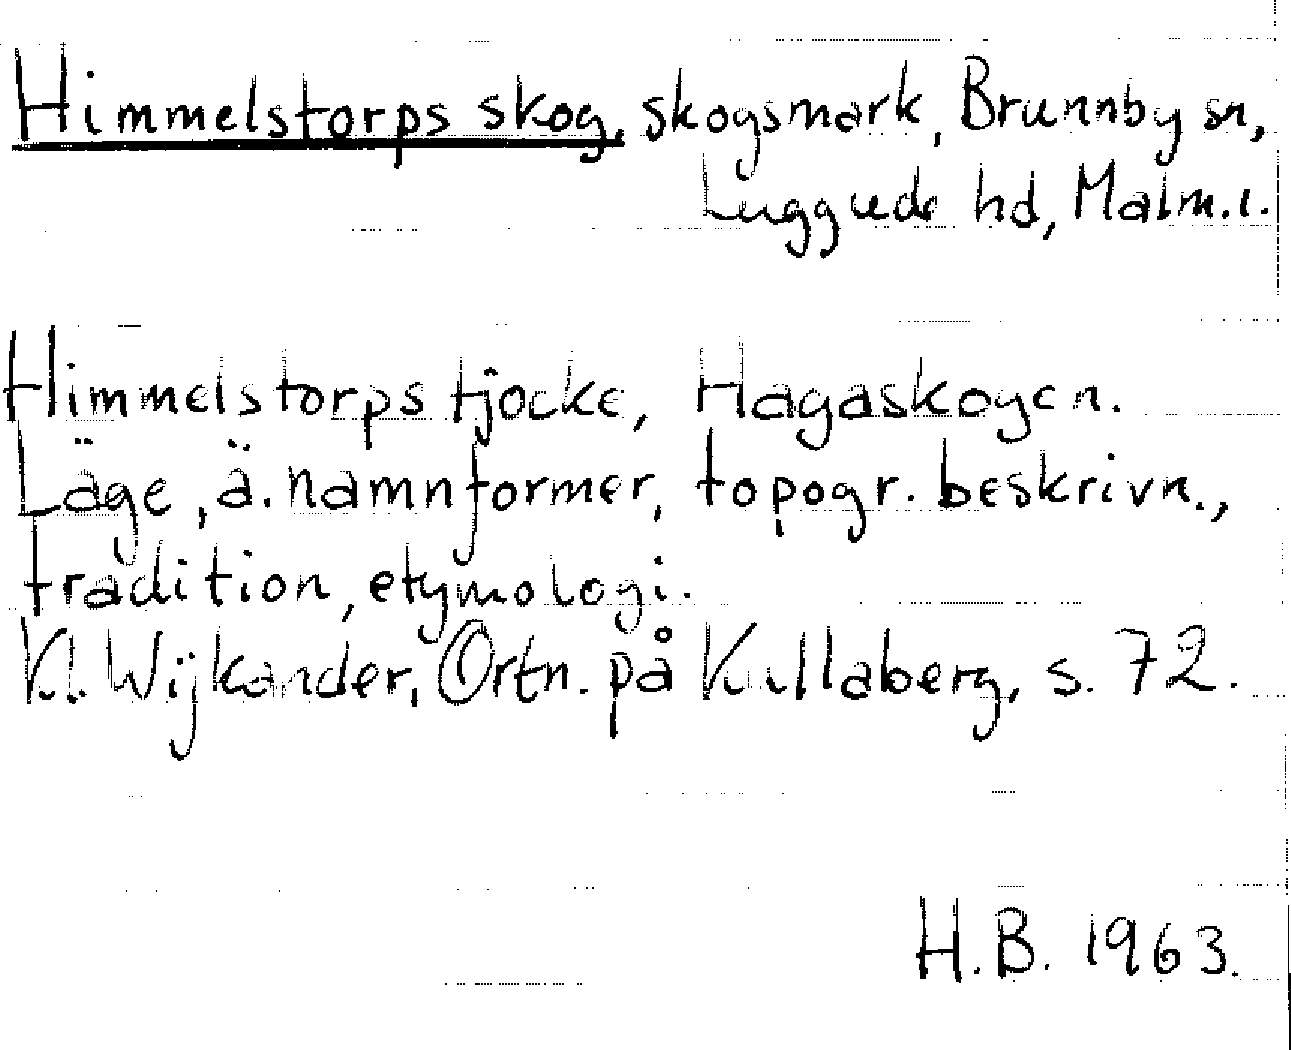 Himmelstorps skog, skogsmark, Brunnby sn,
Luggude hd, Malm.l.
Himmelstorps tjocke, Hagaskogen.
Läge, ä. namnformer, topogr. beskrivn.,
tradition, etymologi.
K. Wijkander, Ortn. på Kullaberg, s. 72.
H.B. 1963.